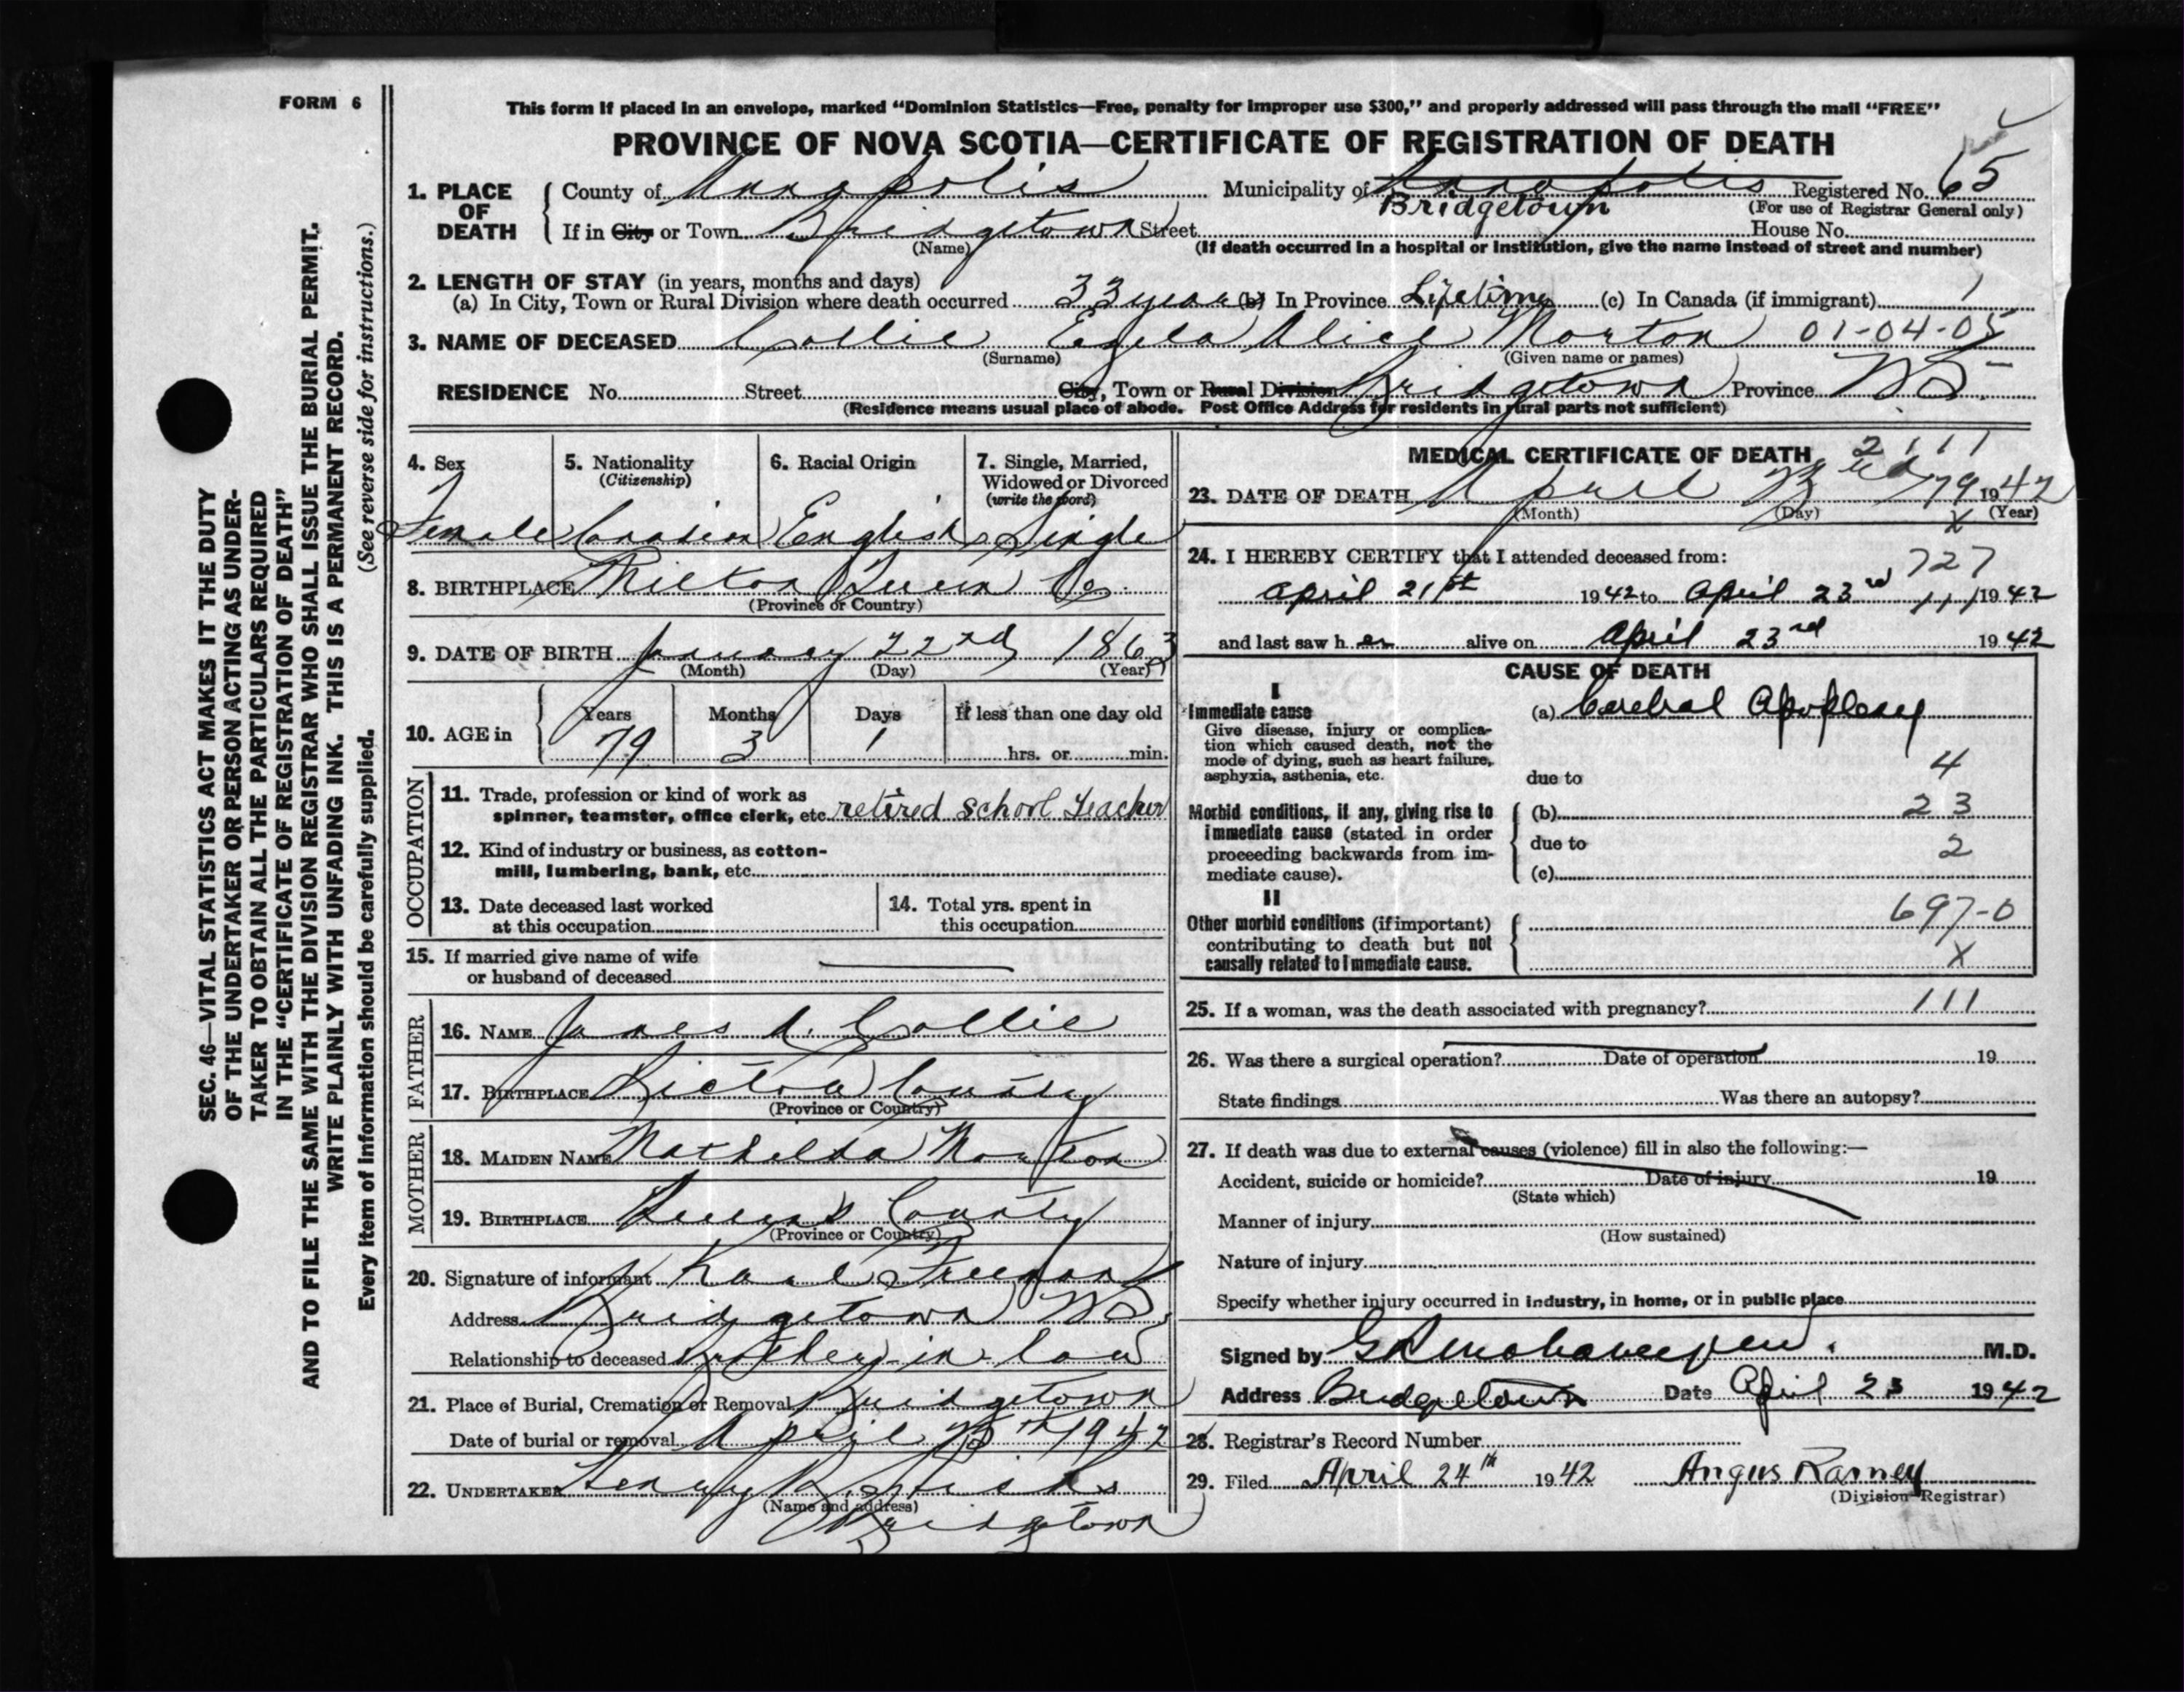 FORM 6
This form if placed in an envelope, marked “Dominion Statistics—Free, penalty for improper use $300,” and properly addressed will pass through the mail “FREE”
PROVINCE OF NOVA SCOTIA—CERTIFICATE OF REGISTRATION OF DEATH
1. PLACE OF DEATH County of Annapolis Municipality of Annapolis Registered No. 65
Bridgetown (For use of Registrar General only)
If in City or Town Bridgetown Street House No.
(Name) (If death occurred in a hospital or institution, give the name instead of street and number)
2. LENGTH OF STAY (in years, months and days)
(a) In City, Town or Rural Division where death occurred 33 years (b) In Province Lifetime (c) In Canada (if immigrant) 1
3. NAME OF DECEASED Collie Alice Morton 01-04-05
(Surname) (Given name or names)
RESIDENCE No. Street City, Town or Rural Division Bridgetown Province NS
(Residence means usual place of abode. Post Office Address for residents in rural parts not sufficient)
4. Sex 5. Nationality (Citizenship) 6. Racial Origin 7. Single, Married, Widowed or Divorced (write the word)
Female Canadian English Single
8. BIRTHPLACE Milton Queen Co.
(Province or Country)
9. DATE OF BIRTH January 22nd 1863
(Month) (Day) (Year)
10. AGE in Years Months Days If less than one day old
79 3 1 hrs. or min.
OCCUPATION
11. Trade, profession or kind of work as
spinner, teamster, office clerk, etc. retired school teacher
12. Kind of industry or business, as cotton-
mill, lumbering, bank, etc.
13. Date deceased last worked
at this occupation
14. Total yrs. spent in
this occupation
15. If married give name of wife
or husband of deceased
FATHER
16. NAME James A. Collie
17. BIRTHPLACE Pictou County
(Province or Country)
MOTHER
18. MAIDEN NAME Mathelda Morton
19. BIRTHPLACE Queens County
(Province or Country)
20. Signature of informant Karl Freeman
Address Bridgetown NS
Relationship to deceased Brother in law
21. Place of Burial, Cremation or Removal Bridgetown
Date of burial or removal April 25th 1942
22. UNDERTAKER
(Name and address)
Bridgetown
MEDICAL CERTIFICATE OF DEATH 2111
23. DATE OF DEATH April 23rd 79 1942
(Month) (Day) (Year)
X
24. I HEREBY CERTIFY that I attended deceased from:
727
April 21st 1942 to April 23rd 111 1942
and last saw her alive on April 23rd 1942
CAUSE OF DEATH
I
Immediate cause (a) Cerebral Apoplexy
Give disease, injury or complica-
tion which caused death, not the
mode of dying, such as heart failure,
asphyxia, asthenia, etc. due to 4
Morbid conditions, if any, giving rise to (b) 23
immediate cause (stated in order
proceeding backwards from im- due to 2
mediate cause). (c)
II
697-0
Other morbid conditions (if important)
contributing to death but not
causally related to immediate cause. X
25. If a woman, was the death associated with pregnancy? 111
26. Was there a surgical operation? Date of operation 19
State findings Was there an autopsy?
27. If death was due to external causes (violence) fill in also the following:—
Accident, suicide or homicide? Date of injury 19
(State which)
Manner of injury
(How sustained)
Nature of injury
Specify whether injury occurred in industry, in home, or in public place
Signed by M.D.
Address Bridgetown Date April 23 1942
28. Registrar's Record Number
29. Filed April 24th 1942 Angus Ramey
(Division Registrar)
SEC. 46—VITAL STATISTICS ACT MAKES IT THE DUTY
OF THE UNDERTAKER OR PERSON ACTING AS UNDER-
TAKER TO OBTAIN ALL THE PARTICULARS REQUIRED
IN THE “CERTIFICATE OF REGISTRATION OF DEATH”
AND TO FILE THE SAME WITH THE DIVISION REGISTRAR WHO SHALL ISSUE THE BURIAL PERMIT.
WRITE PLAINLY WITH UNFADING INK. THIS IS A PERMANENT RECORD.
Every item of information should be carefully supplied. (See reverse side for instructions.)